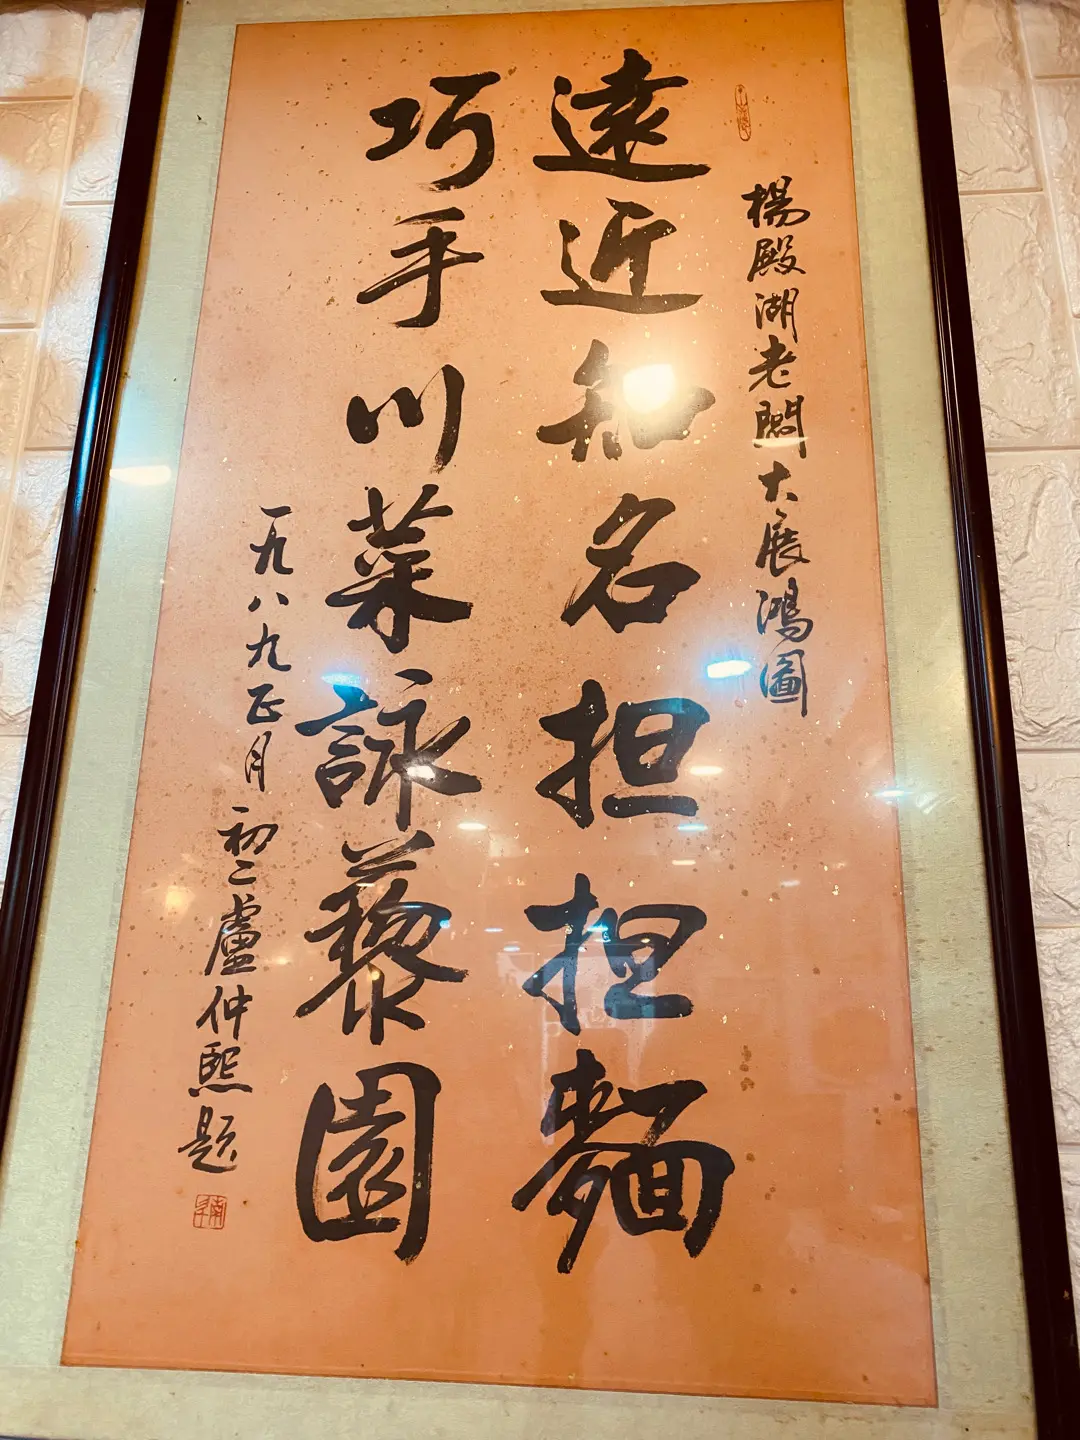 楊殿湖老闆大展鴻圖
遠近知名担担麵
巧手川菜詠藜園
一九八九正月初二盧仲熙題